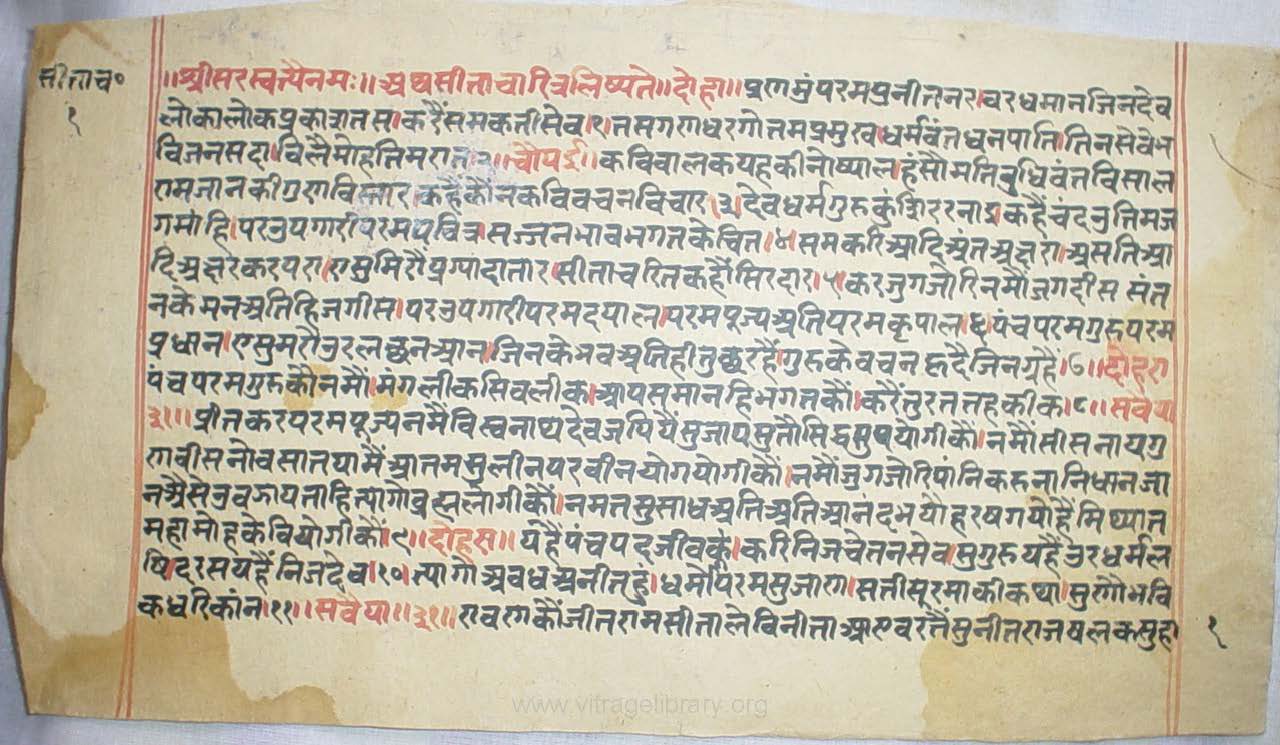 सीताच०
१
॥श्रीसरस्वत्यैनमः॥अथसीताचारित्रलिष्यते॥दोहा॥प्रणमुंपरमपुनीतनर।वरधमानजिनदेव
लोकालोकप्रकाशतस।करैंसमकतीसेव।१।तसगणधरगोतमप्रमुख।धर्मवंतधनपाति।तिनसेवेभ
विजनसदा।विलैमोहतिमराति॥चौपई॥कविवालकयहकीनोष्याल।हंसौमतिबुधिवंतविसाल
रामजानकीगुणविस्तार।कहैकौनकविवचनविचार।३।देवधर्मगुरुकुं
गमांहि।परउपगारीपरमपवित्र।सज्जनभावभगतकेचित।४।समकरिआदिअंतअक्षरा।
दिअक्षरकरपरा।एसुमिरौंप्रग्यांदातार।सीताचरितकहौंसिरदार।५।करजुगजोरिनमौंजगदीस संत
नकेमनअतिहिजगीस।परउपगारीपरमदयाल।परमपूज्यअतिपरमकृपाल।६।पंचपरमगुरुपरम
प्रधान।एसुमरौउरलछनआन।जिनकेभवअतिहीतुछरहैं।गुरुकेवचनह्रदैजिनग्रहै।७॥दोहरा
पंचपरमगुरुकौनमौं।मंगलीकसिवलीक।आपसमानहिभगतकौं।करैंतुरततहकीक।८॥सवैया
३१॥प्रीतकरपरमपूज्यनमैविस्वनाथदेवजपियैंसुजापसुतौसिद्धसुषयोगीकौं।नमौंसीसनायगु
णवीसनोवसातयामैंआतमसुलीनपरवीनयोगयोगीकौं।नमौंजुगजोरिपांनिकरुनानिधानजा
नऔसेउवझायताहित्यागोव्रह्मलोगीकौं।नमतसुसाधअतिअतिआनंदभयौहरषगयोहैंमिथ्यात
महामोहकेवियोगीकौं।९॥दोहरा॥यहैपंचपदजीवकूं।करिनिजचेतनसेव।सुगुरुयहैंउरधर्मल
षि।दरसयहैंनिजदेव।१०।त्यागौअवधअनीतहुं।धर्मोपरमसुजाण।सतीसूरमाकीकथा।सुणौभवि
कधरिकांन।११॥सवैया॥३१॥रावणकौंजीतरामसीतालेविनीता
१
www.vitragelibrary.org